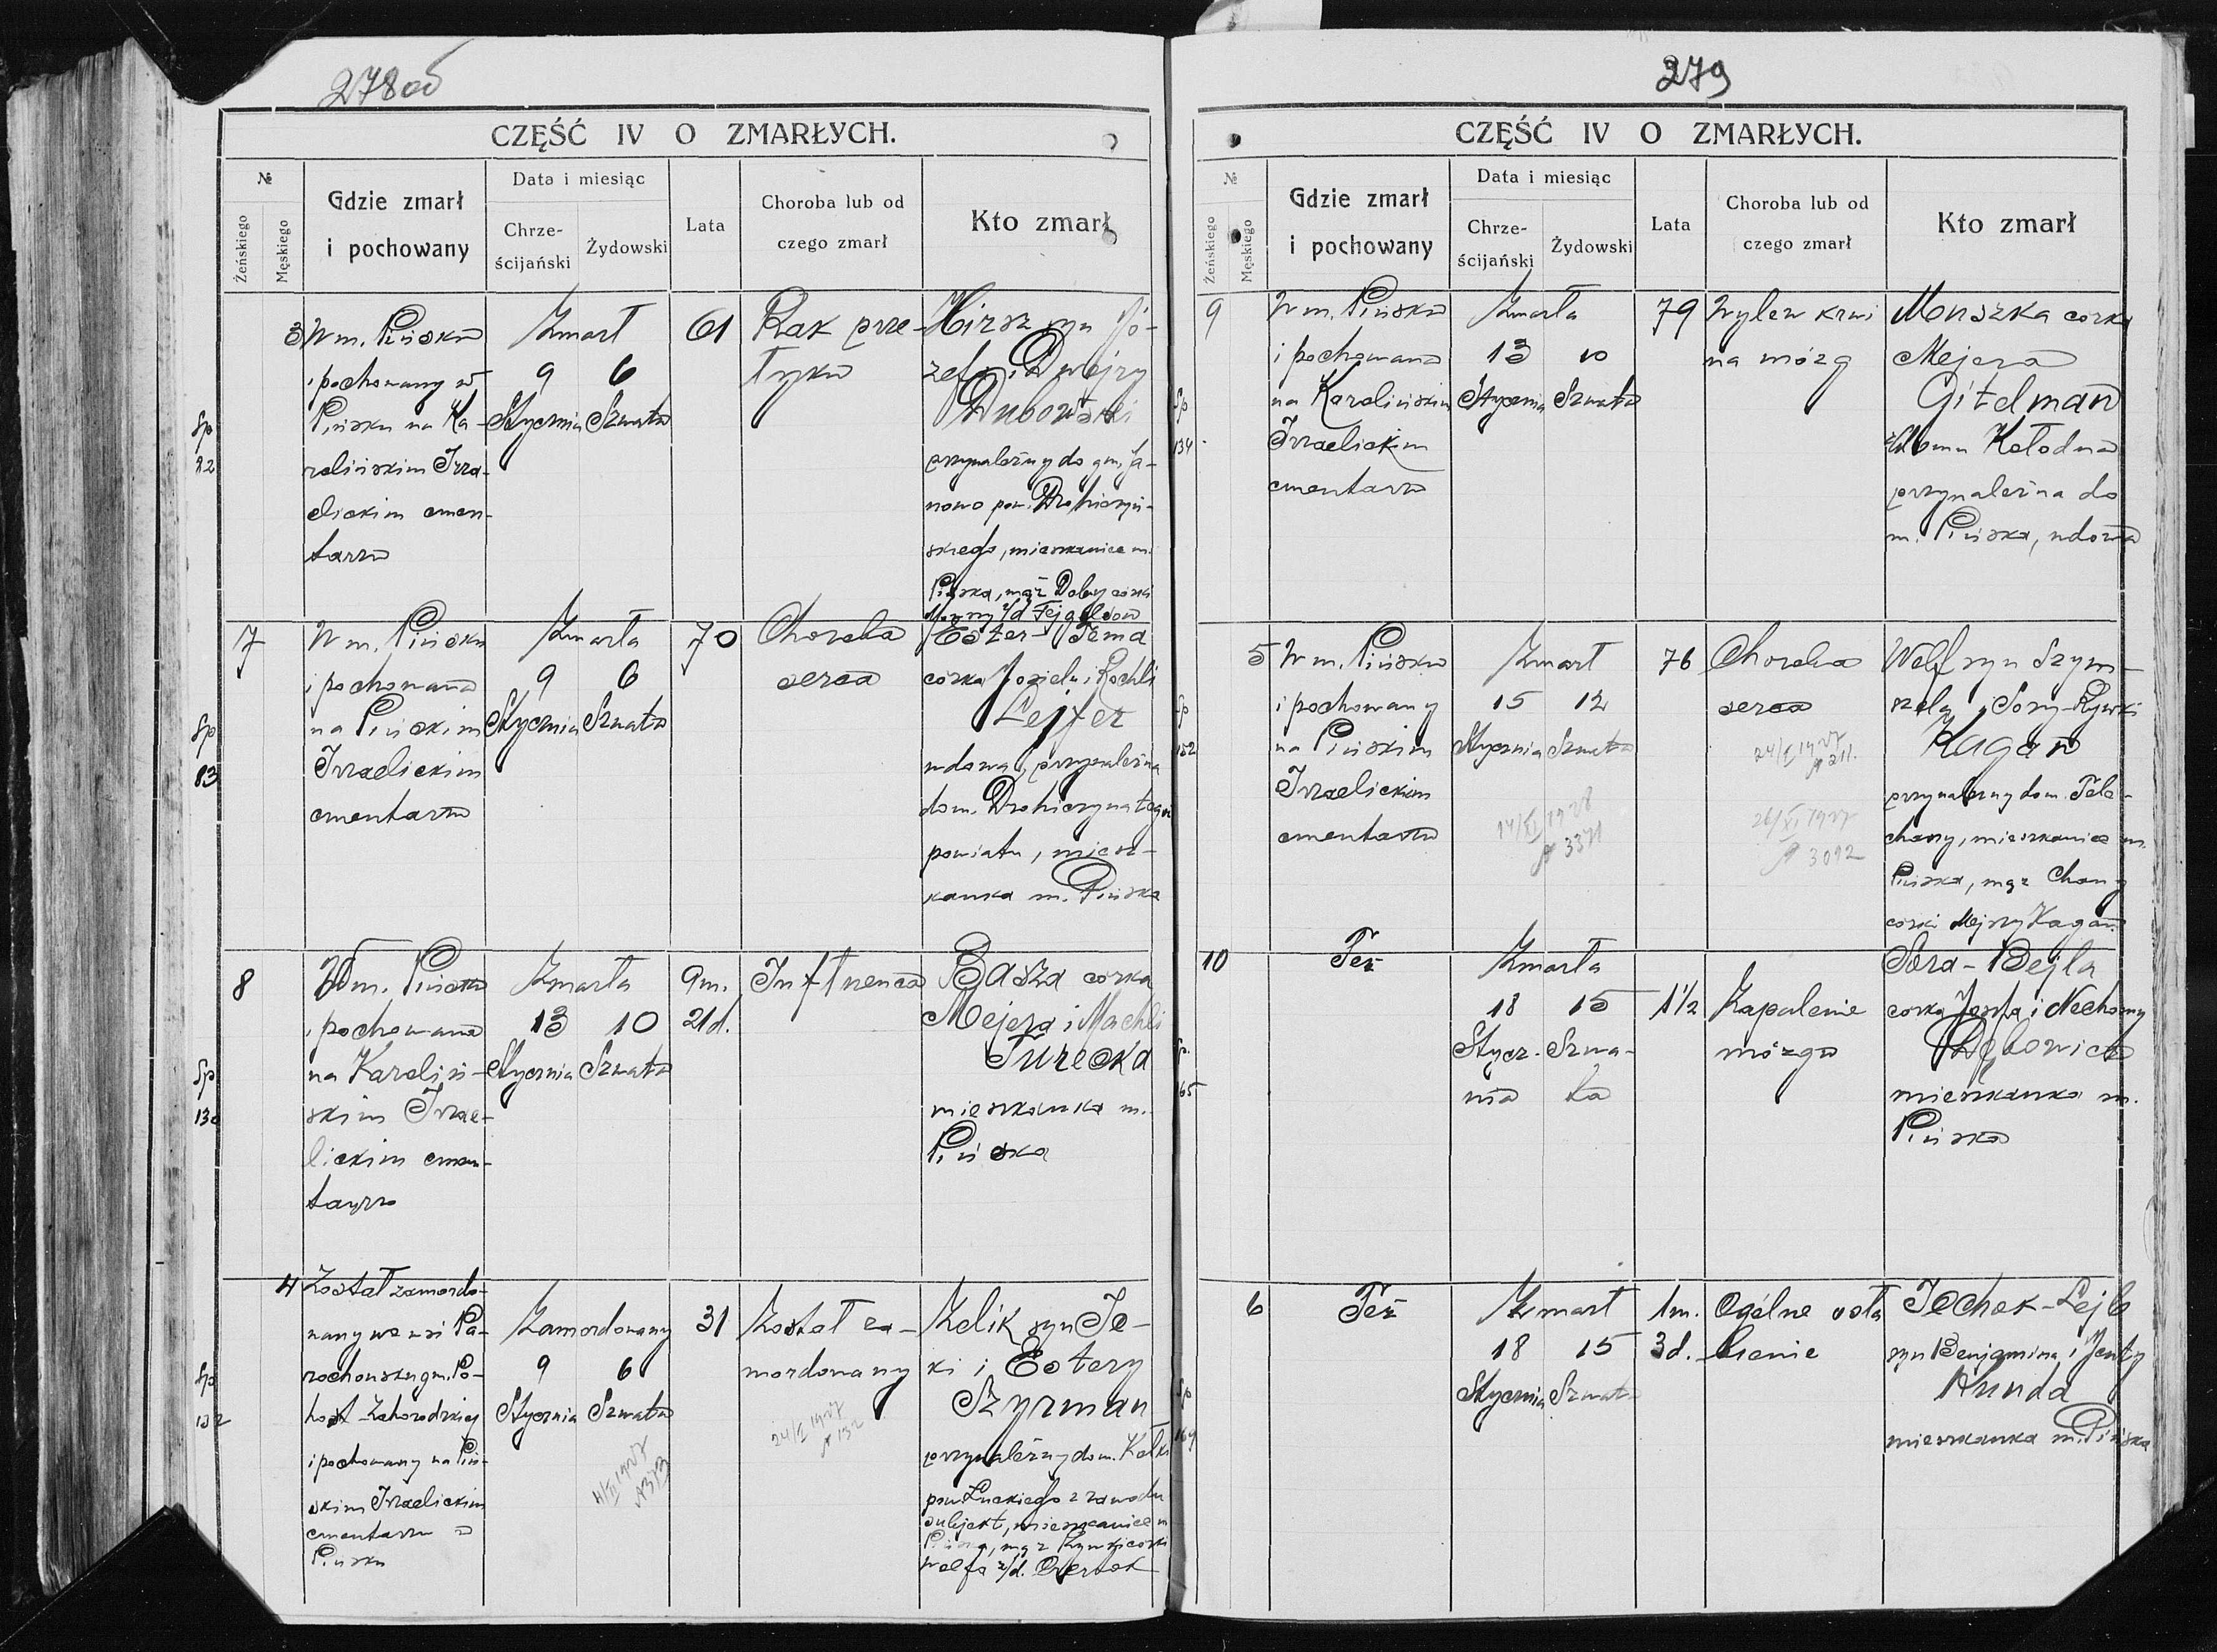 278 об
CZĘŚĆ IV O ZMARŁYCH.
№
Żeńskiego
Męskiego
Gdzie zmarł
i pochowany
Data i miesiąc
Chrze-
ścijański
Żydowski
Lata
Choroba lub od
czego zmarł
Kto zmarł
3
W m. Pińsku
i pochowany w
Pińsku na Ka-
rolińskim Izra-
elickim cmen-
tarzu
Zmarł
9 6
Stycznia Szwata
61
Rak prze-
łyku
Hirsz syn Jó-
zefa i Dwejry
Dubowski
przynależny do gm. Ja-
nowo pow. Drohiczyń-
skiego, mieszkaniec m.
Pińska, mąż Doby córki
z/d Fejgelson
Sp
82
7
W m. Pińsku
i pochowana
na Pińskim
Izraelickim
cmentarzu
Zmarła
9 6
Stycznia Szwata
70
Choroba
serca
Ester-Tema
córka Josiela i Rochli
Lejfer
wdowa, przynależna
do m. Drohiczyna tegoż
powiatu, miesz-
kanka m. Pińska
Sp
83
8
W m. Pińsku
i pochowana
na Karoliń-
skim Izrae-
lickim cmen-
tarzu
Zmarła
13 10
Stycznia Szwata
9m.
21d.
Influenca
Basza córka
Mejera i Machli
Turecka
mieszkanka m.
Pińska
Sp
130
4
Został zamordo-
wany we wsi Pa-
rochońsku gm. Po-
host-Zahorodzkiej
i pochowany na Piń-
skim Izraelickim
cmentarzu w
Pińsku
Zamordowany
9 6
Stycznia Szwata
31
Został za-
mordowany
24/I 1927
№ 132
Zelik syn Ie-
ki i Estery
Szyrman
przynależny do m. Kołki
pow. Łuckiego z zawodu
subjekt, mieszkaniec m.
Pińska, mąż Rywki córki
Wolfa z/d.
Sp
132
279
CZĘŚĆ IV O ZMARŁYCH.
№
Żeńskiego
Męskiego
Gdzie zmarł
i pochowany
Data i miesiąc
Chrze-
ścijański
Żydowski
Lata
Choroba lub od
czego zmarł
Kto zmarł
9
W m. Pińsku
i pochowana
na Karolińskim
Izraelickim
cmentarzu
Zmarła
13 10
Stycznia Szwata
79
Wylew krwi
na mózg
Monszka córka
Mejera
Gitelman
z domu Kołodna
przynależna do
m. Pińska, wdowa
Sp
134
5
W m. Pińsku
i pochowany
na Pińskim
Izraelickim
cmentarzu
Zmarł
15 12
Stycznia Szwata
14/XI 1928
№ 3371
76
Choroba
serca
24/I 1927
№ 211.
26/XI 1927
№ 3092
Wolf syn Szym-
szela i Sory-Rywki
Kagan
przynależny do m. Tele-
chany, mieszkaniec m.
Pińska, mąż Chany
córki Mejszy Kagan
Sp
152
10
Też
Zmarła
18 15
Stycz- Szwa-
nia ta
1 1/2
Zapalenie
mózgu
Sora-Bejla
córka Josifa i Nechomy
Dębowicz
mieszkanka m.
Pińska
Sp.
165
6
Też
Zmarł
18 15
Stycznia Szwata
1m.
3d.
Ogólne osła
bienie
Icchok-Lejb
syn Benjamina i Jenty
Hunda
mieszkanka m. Pińska
Sp
169